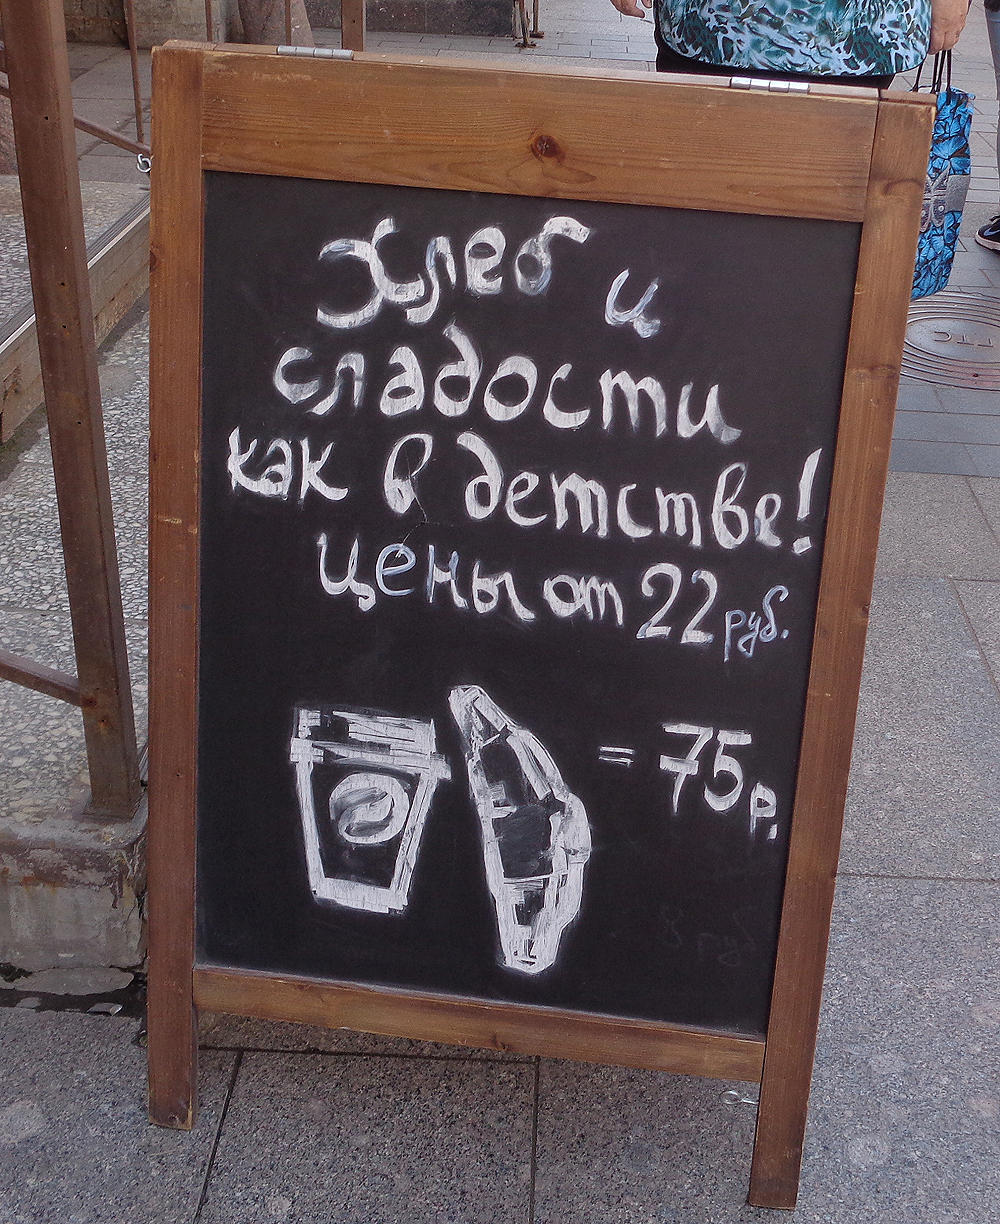 Хлеб и
сладости
как в детстве!
цены от 22 руб.
= 75 р.